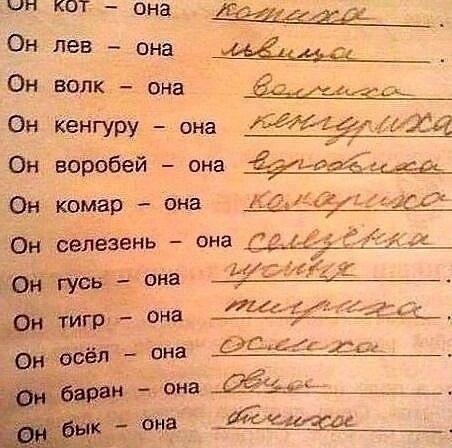 Он кот – она котиха.
Он лев – она львица.
Он волк – она волчиха
Он кенгуру – она кенгуриха
Он воробей – она воробьиха
Он комар – она комариха
Он селезень – она селезёнка
Он гусь – она гусиня.
Он тигр – она тигриха.
Он осёл – она ослиха.
Он баран – она овца.
Он бык – она бичиха.